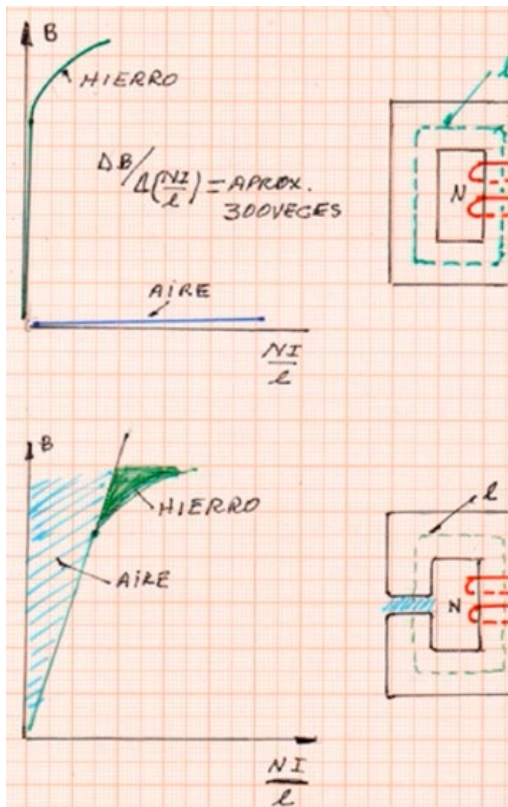 B
HIERRO
l
ΔB/Δ(NI/l) = APROX.
300 VECES
N
AIRE
NI/l
B
HIERRO
l
AIRE
N
NI/l